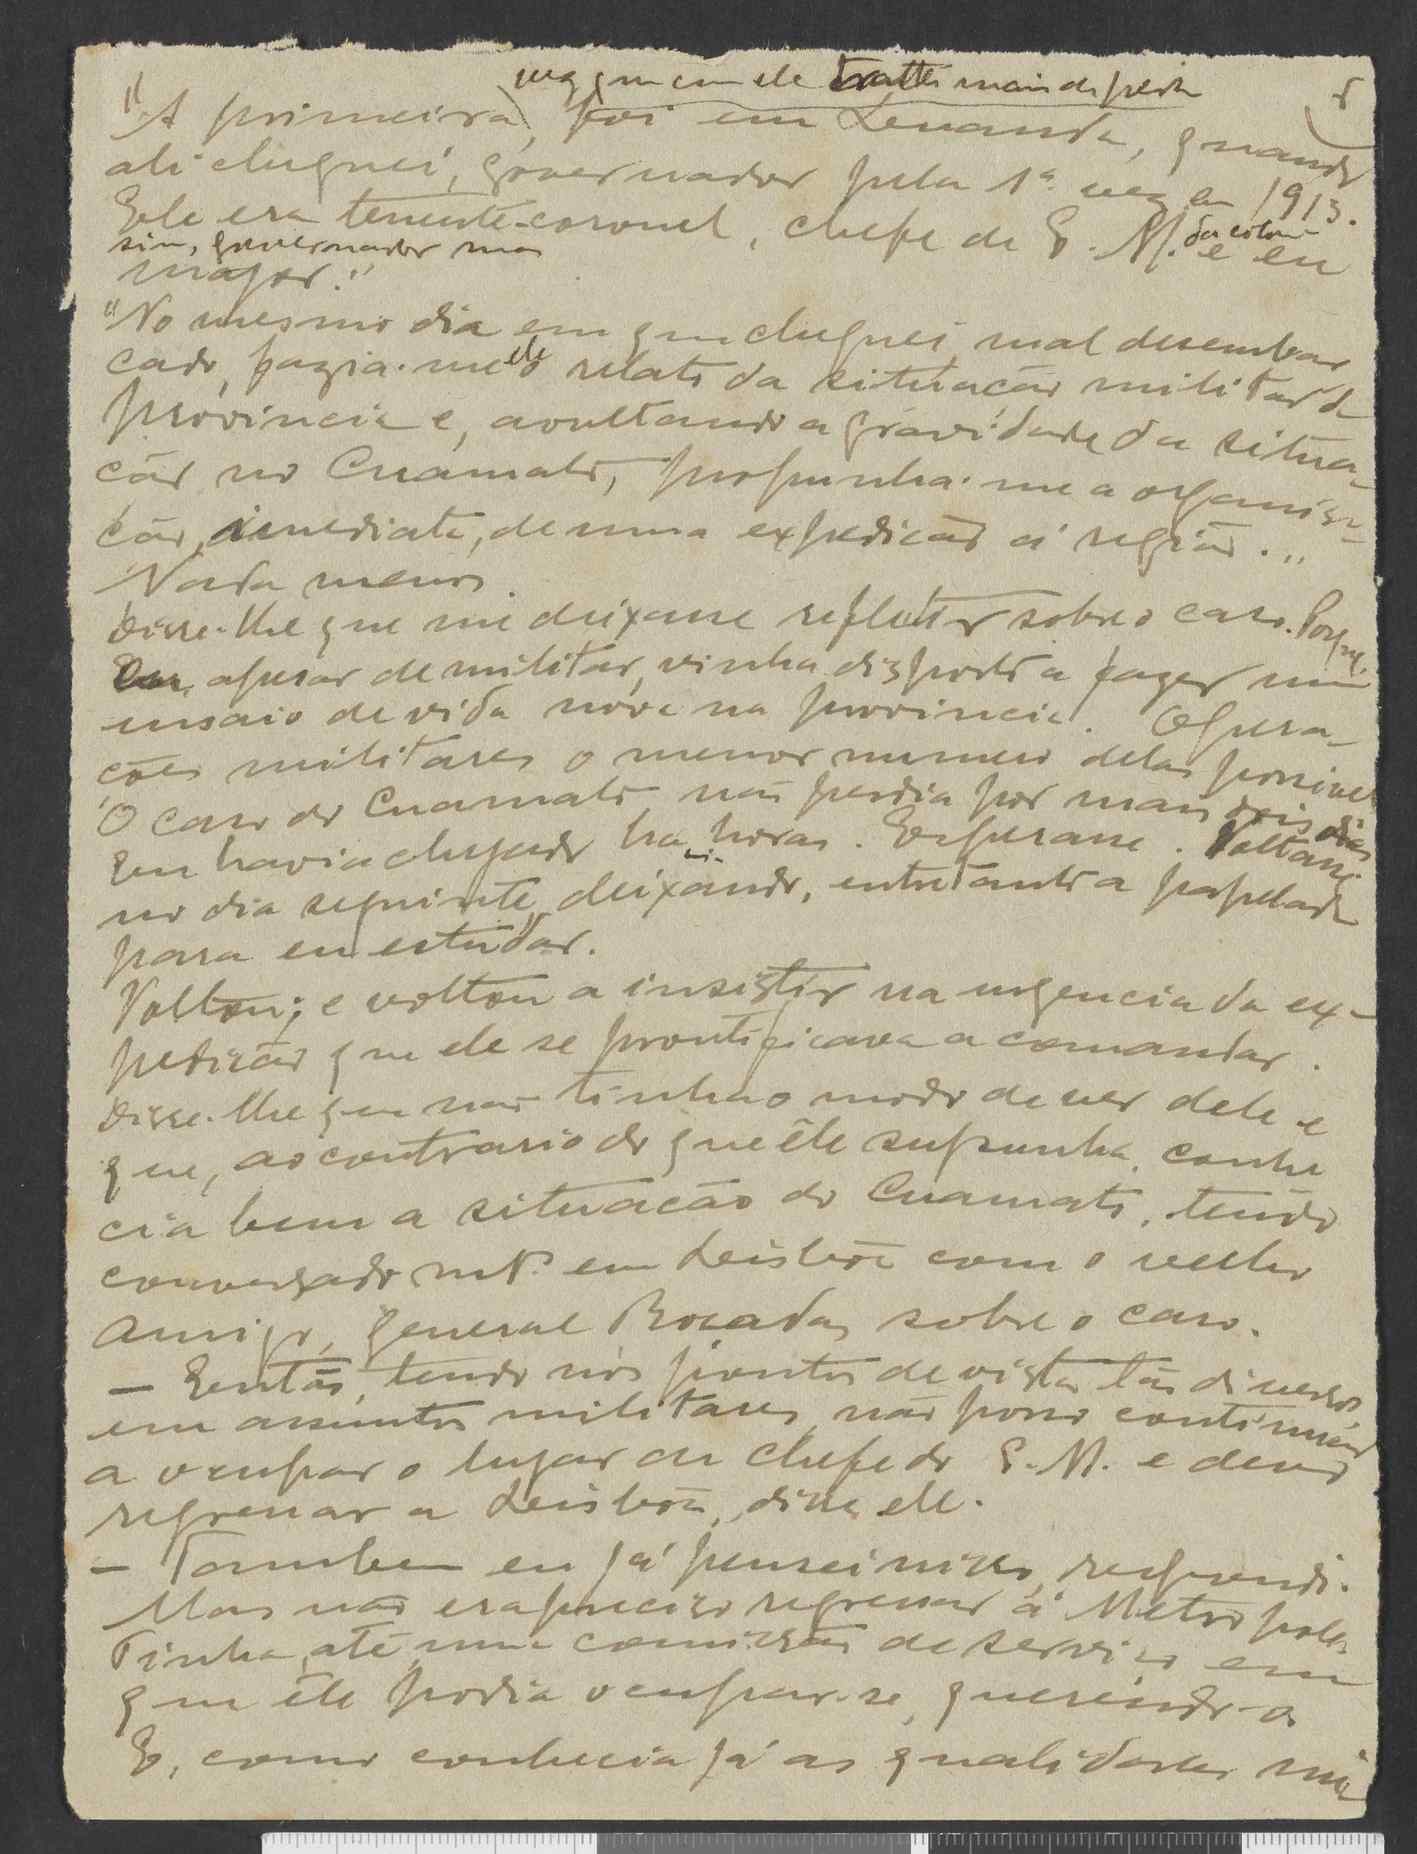 vez que com ele tratei mais de perto
5
"A primeira, foi em Luanda, quando
ali cheguei, governador pela 1ª vez em 1913.
Ele era tenente-coronel, chefe de E. M. da colonia e eu
sim, governador mas
major."
"No mesmo dia em que cheguei, mal desembar
cado, fazia-me ele o relato da situação militar da
provincia e, avultando a gravidade da situa-
ção no Cuamato, propunha-me a organisa-
ção, imediata, de uma expedição á região...
Nada menos.
Disse-lhe que me deixasse refletir sobre o caso. Porque,
apesar de militar, vinha disposto a fazer um
ensaio de vida nova na provincia. Opera-
ções militares o menor numero delas possivel
O caso do Cuamato não perdia por mais dois dias
Eu havia chegado ha horas. Esperasse. Voltasse
no dia seguinte, deixando, entretanto a papelada
para eu estudar.
Voltou; e voltou a insistir na urgencia da ex-
pedição que ele se prontificava a comandar.
Disse-lhe que não tinha o modo de ver dele e
que, ao contrario do que êle supunha, conhe
cia bem a situação do Cuamato, tendo
conversado mtº em Lisbôa com o velho
amigo, general Roçadas sobre o caso.
— Então, tendo nós pontos de vista tão diversos
em assuntos militares, não posso continuar
a ocupar o lugar de chefe do E. M. e devo
regressar a Lisbôa, disse ele.
— Tambem eu já pensei nisso, respondi.
Mas não era preciso regressar á Metropole.
Tinha, até, uma comissão de serviço em
que êle podia ocupar-se, querendo-o
E, como conhecia já as qualidades mi